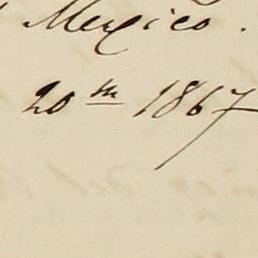 Mexico.
20th 1867